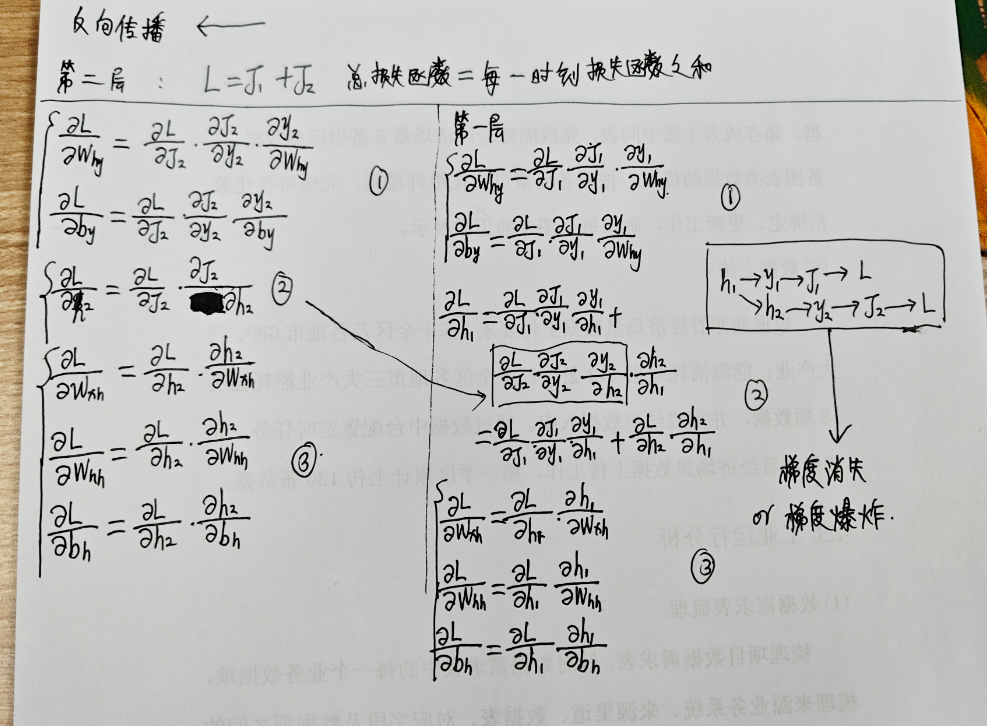 反向传播 ←
第二层 : L=J₁+J₂ 总损失函数=每一时刻损失函数之和
{ ∂L/∂Why = ∂L/∂J₂ · ∂J₂/∂y₂ · ∂y₂/∂Why
∂L/∂by = ∂L/∂J₂ · ∂J₂/∂y₂ · ∂y₂/∂by ①
{ ∂L/∂h₂ = ∂L/∂J₂ · ∂J₂/∂h₂ ②
{ ∂L/∂Wxh = ∂L/∂h₂ · ∂h₂/∂Wxh
∂L/∂Whh = ∂L/∂h₂ · ∂h₂/∂Whh ③
∂L/∂bh = ∂L/∂h₂ · ∂h₂/∂bh
第一层
{ ∂L/∂Why = ∂L/∂J₁ · ∂J₁/∂y₁ · ∂y₁/∂Why
∂L/∂by = ∂L/∂J₁ · ∂J₁/∂y₁ · ∂y₁/∂Why ①
∂L/∂h₁ = ∂L/∂J₁ · ∂J₁/∂y₁ · ∂y₁/∂h₁ +
∂L/∂J₂ · ∂J₂/∂y₂ · ∂y₂/∂h₂ · ∂h₂/∂h₁ ②
= ∂L/∂J₁ · ∂J₁/∂y₁ · ∂y₁/∂h₁ + ∂L/∂h₂ · ∂h₂/∂h₁
{ ∂L/∂Wxh = ∂L/∂h₁ · ∂h₁/∂Wxh
∂L/∂Whh = ∂L/∂h₁ · ∂h₁/∂Whh ③
∂L/∂bh = ∂L/∂h₁ · ∂h₁/∂bh
h₁→y₁→J₁→L
↘h₂→y₂→J₂→L
梯度消失
or 梯度爆炸.